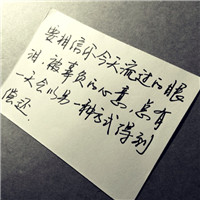 要相信你今天流过的眼
泪，被辜负的心意，总有
一天会以另一种方式得到
偿还.